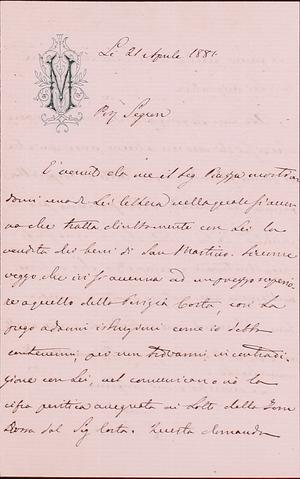 Li 21 Aprile 1881
Sigr
È venuto da me il Sig Piazza mostran
domi una di Lei lettera nella quale si accenna
che tratta direttamente con Lei la
vendita dei beni di San Martino. Siccome
veggo che ivi si accenna ad un prezzo superio
re a quello della perizia Costa, così La
prego a darmi istruzioni come io debba
contenermi, per non trovarmi in contradi
zione con Lei, nel comunicare o no la
cifra peritica assegnata ai Lotti della Torre
Rossa dal Sig Costa. Questa domanda